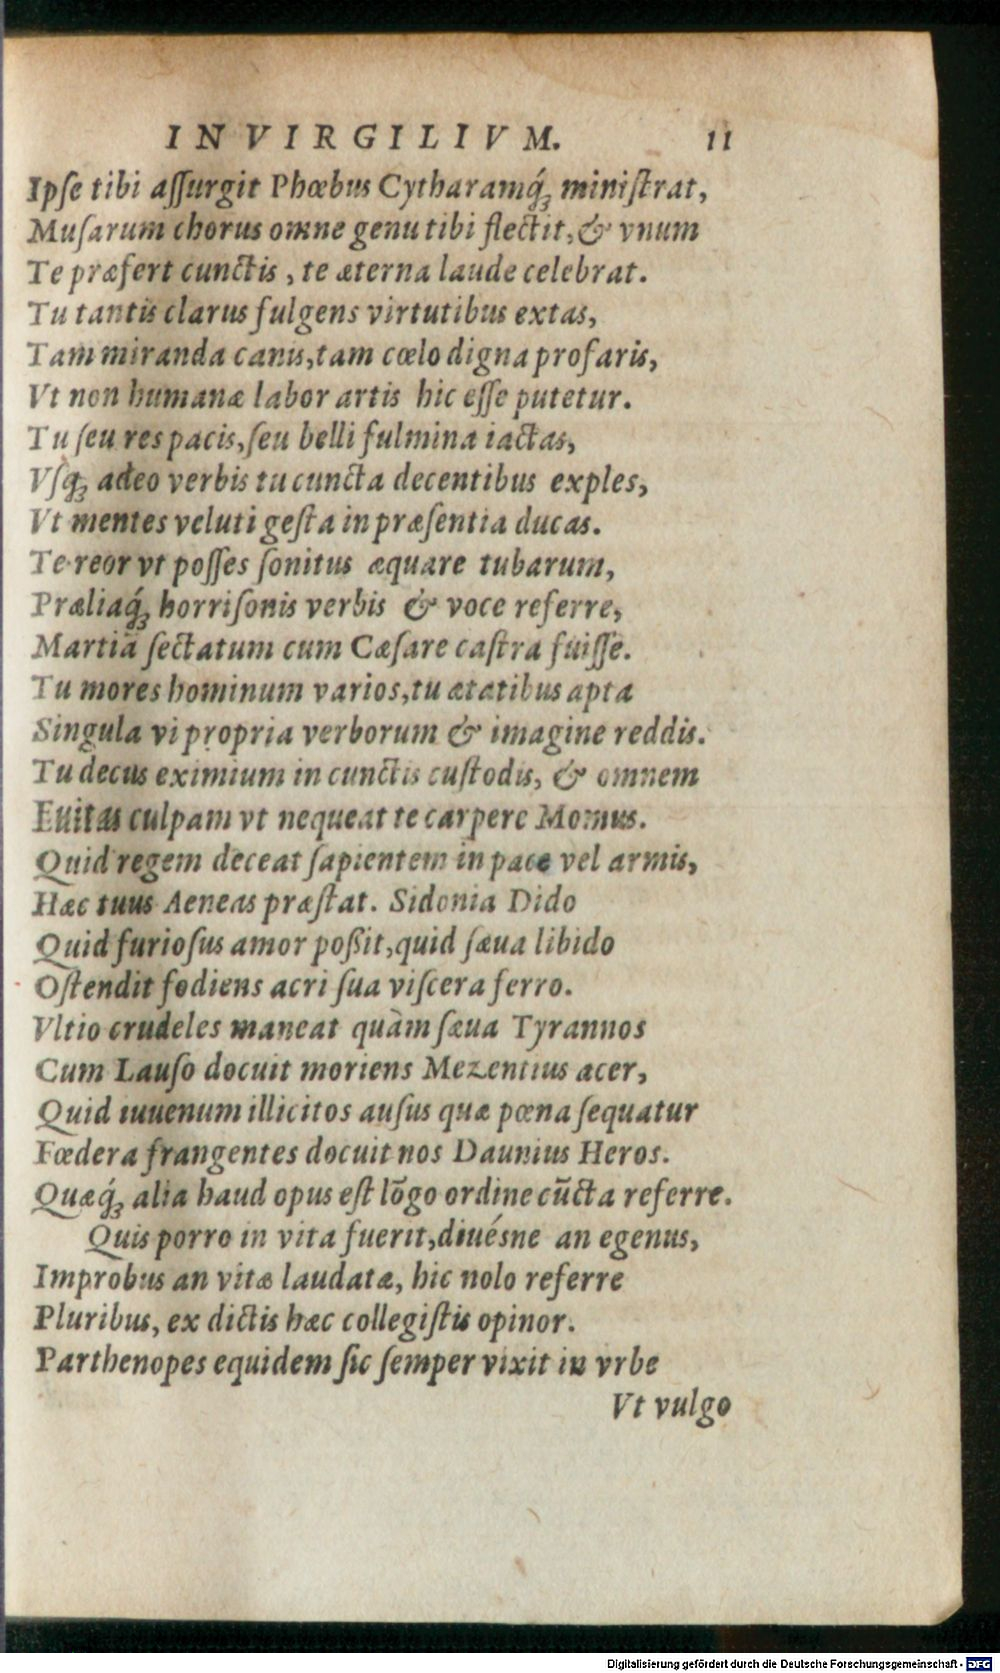 IN VIRGILIVM. 11
Ipſe tibi aſſurgit Phœbus Cytharamq́ꝫ miniſtrat,
Muſarum chorus omne genu tibi flectit, & vnum
Te præfert cunctis, te æterna laude celebrat.
Tu tantis clarus fulgens virtutibus extas,
Tam miranda canis, tam cœlo digna profaris,
Vt non humanæ labor artis hic eſſe putetur.
Tu ſeu res pacis, ſeu belli fulmina iactas,
Vſqꝫ adeo verbis tu cuncta decentibus exples,
Vt mentes veluti geſta in præſentia ducas.
Te reor vt poſſes ſonitus æquare tubarum,
Præliaq́ꝫ horriſonis verbis & voce referre,
Martiā ſectatum cum Cæſare caſtra fuiſſe.
Tu mores hominum varios, tu ætatibus apta
Singula vi propria verborum & imagine reddis.
Tu decus eximium in cunctis cuſtodis, & omnem
Euitas culpam vt nequeat te carpere Momus.
Quid regem deceat ſapientem in pace vel armis,
Hæc tuus Aeneas præſtat. Sidonia Dido
Quid furioſus amor poßit, quid ſæua libido
Oſtendit fodiens acri ſua viſcera ferro.
Vltio crudeles maneat quàm ſæua Tyrannos
Cum Lauſo docuit moriens Mezentius acer,
Quid iuuenum illicitos auſus quæ pœna ſequatur
Fœdera frangentes docuit nos Daunius Heros.
Quæq́ꝫ alia haud opus eſt lōgo ordine cūcta referre.
Quis porro in vita fuerit, diuésne an egenus,
Improbus an vitæ laudatæ, hic nolo referre
Pluribus, ex dictis hæc collegiſtis opinor.
Parthenopes equidem ſic ſemper vixit in vrbe
Vt vulgo
Digitalisierung gefördert durch die Deutsche Forschungsgemeinschaft - DFG